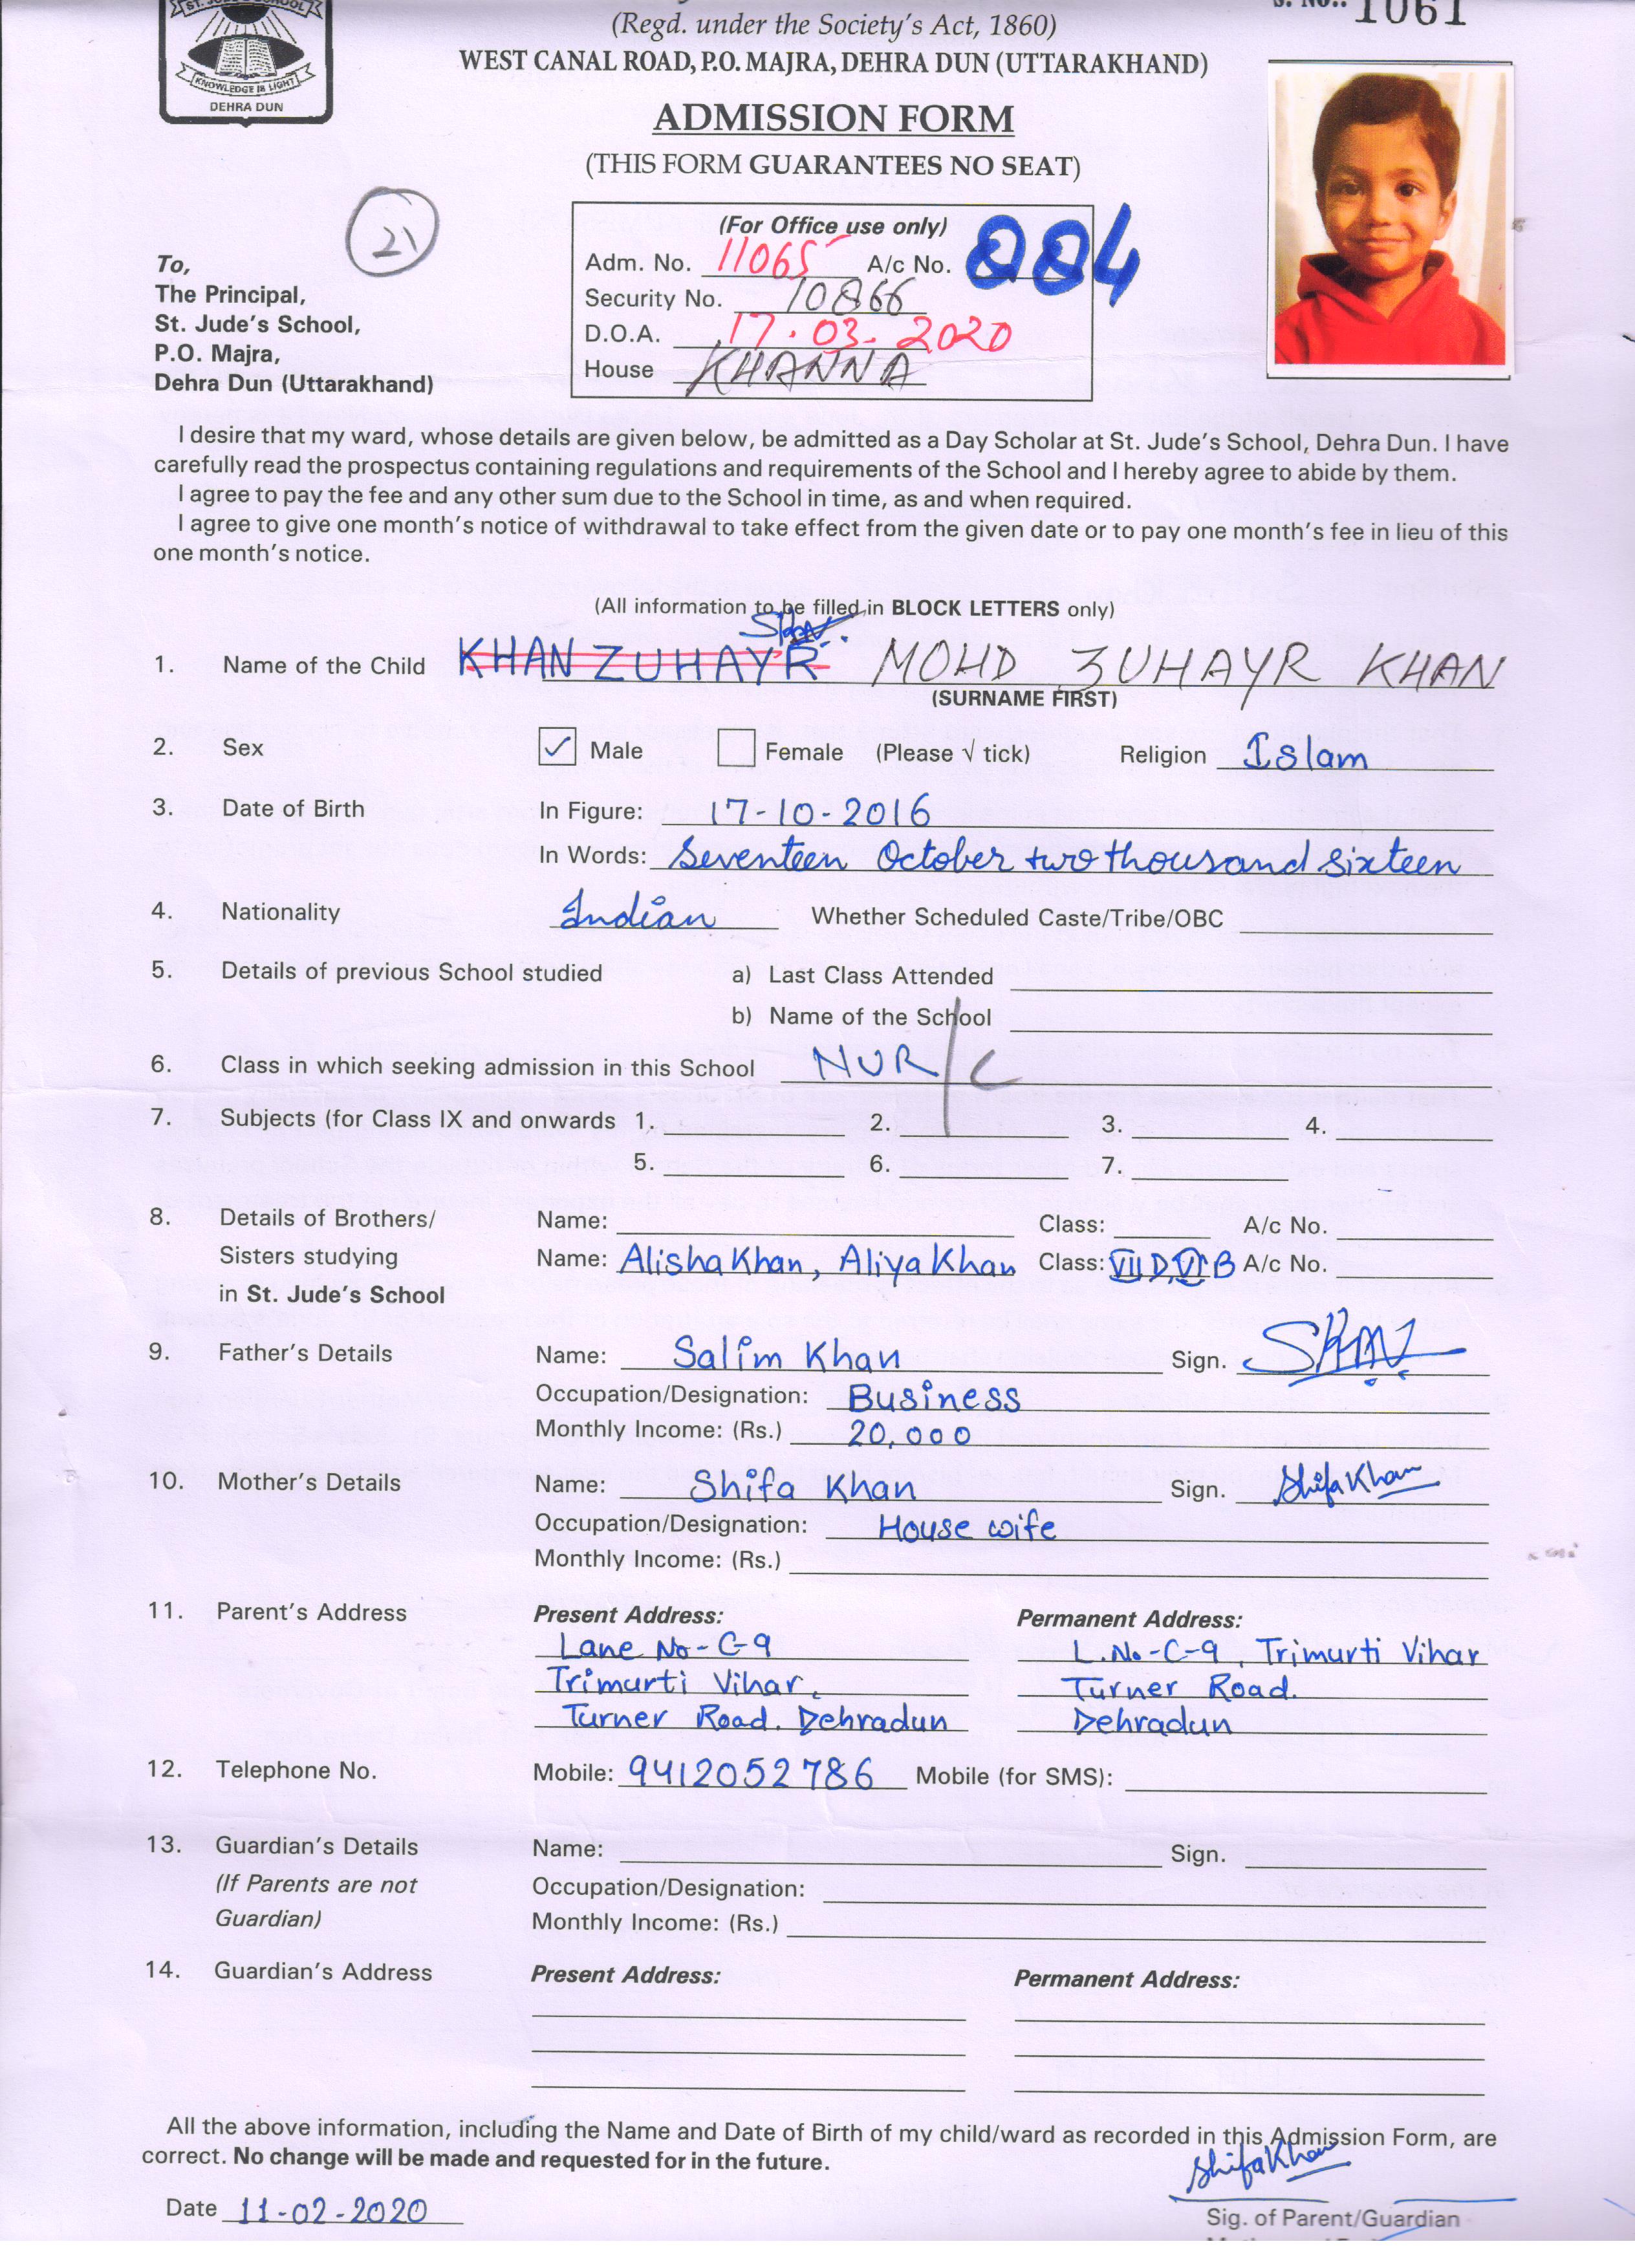 ST. JUDE'S SCHOOL
KNOWLEDGE IS LIGHT
DEHRA DUN
S. No.: 1061
(Regd. under the Society's Act, 1860)
WEST CANAL ROAD, P.O. MAJRA, DEHRA DUN (UTTARAKHAND)
ADMISSION FORM
(THIS FORM GUARANTEES NO SEAT)
21
(For Office use only)
Adm. No. 11065 A/c No. 884
Security No. 10866
D.O.A. 17.03.2020
House KHANNA
To,
The Principal,
St. Jude's School,
P.O. Majra,
Dehra Dun (Uttarakhand)
I desire that my ward, whose details are given below, be admitted as a Day Scholar at St. Jude's School, Dehra Dun. I have
carefully read the prospectus containing regulations and requirements of the School and I hereby agree to abide by them.
I agree to pay the fee and any other sum due to the School in time, as and when required.
I agree to give one month's notice of withdrawal to take effect from the given date or to pay one month's fee in lieu of this
one month's notice.
(All information to be filled in BLOCK LETTERS only)
1. Name of the Child KHAN ZUHAYR MOHD ZUHAYR KHAN
(SURNAME FIRST)
2. Sex ✓ Male Female (Please √ tick) Religion Islam
3. Date of Birth In Figure: 17-10-2016
In Words: Seventeen October two thousand sixteen
4. Nationality Indian Whether Scheduled Caste/Tribe/OBC
5. Details of previous School studied a) Last Class Attended
b) Name of the School
6. Class in which seeking admission in this School NUR/C
7. Subjects (for Class IX and onwards 1. 2. 3. 4.
5. 6. 7.
8. Details of Brothers/ Name: Class: A/c No.
Sisters studying Name: Alisha Khan, Aliya Khan Class: VII D, VI B A/c No.
in St. Jude's School
9. Father's Details Name: Salim Khan Sign.
Occupation/Designation: Business
Monthly Income: (Rs.) 20,000
10. Mother's Details Name: Shifa Khan Sign. Shifa Khan
Occupation/Designation: House wife
Monthly Income: (Rs.)
11. Parent's Address Present Address: Permanent Address:
Lane No-C-9 L.No-C-9, Trimurti Vihar
Trimurti Vihar, Turner Road.
Turner Road. Dehradun Dehradun
12. Telephone No. Mobile: 9412052786 Mobile (for SMS):
13. Guardian's Details Name: Sign.
(If Parents are not Occupation/Designation:
Guardian) Monthly Income: (Rs.)
14. Guardian's Address Present Address: Permanent Address:
All the above information, including the Name and Date of Birth of my child/ward as recorded in this Admission Form, are
correct. No change will be made and requested for in the future.
Shifa Khan
Date 11-02-2020
Sig. of Parent/Guardian